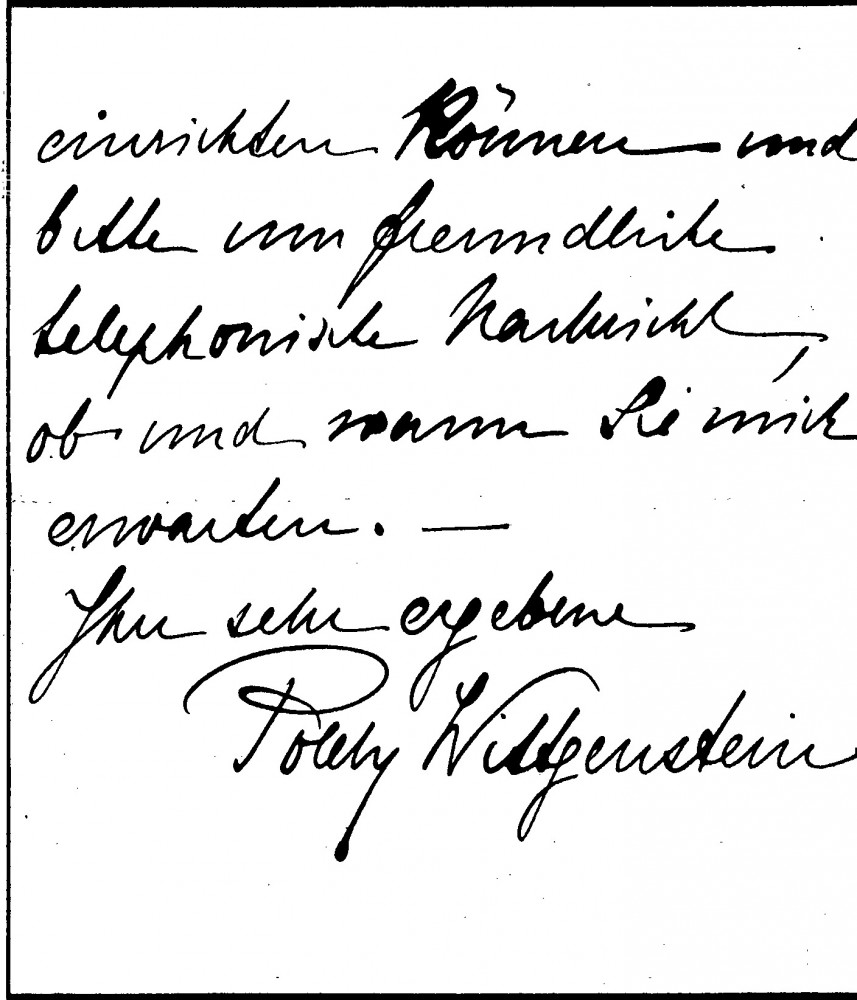 einrichten können und
bitte um freundliche
telephonische Nachricht,
ob und wann Sie mich
erwarten. —
Ihre sehr ergebene
Wittgenstein